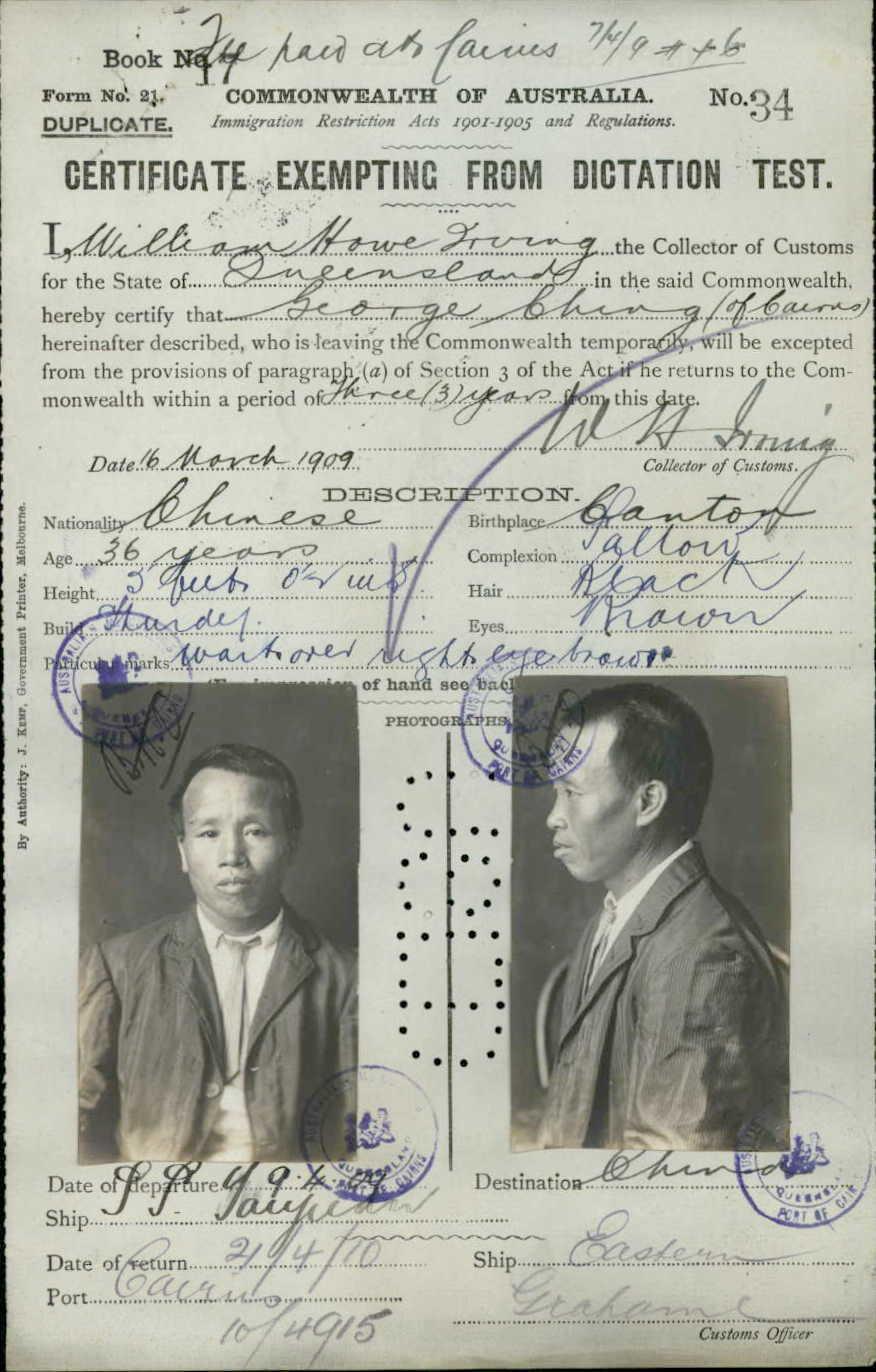 Book No. 74 paid at Cairns 7/4/9
Form No. 21. COMMONWEALTH OF AUSTRALIA. No. 34
DUPLICATE. Immigration Restriction Acts 1901-1905 and Regulations.
CERTIFICATE EXEMPTING FROM DICTATION TEST.
I, William Howe Irving the Collector of Customs
for the State of Queensland in the said Commonwealth,
hereby certify that George Ching (of Cairns)
hereinafter described, who is leaving the Commonwealth temporarily, will be excepted
from the provisions of paragraph (a) of Section 3 of the Act if he returns to the Com-
monwealth within a period of Three (3) years from this date.
W H Irving
Date 16 March 1909. Collector of Customs.
DESCRIPTION.
Nationality Chinese Birthplace Canton
Age 36 years Complexion Sallow
Height 5 feet Hair Black
Build Sturdy. Eyes Brown
Particular marks Wart over right eyebrow
of hand see back
PHOTOGRAPHS
PORT OF CAIRNS
QUEENSLAND
PORT OF CAIRNS
QUEENSLAND
PORT OF CAIRNS
QUEENSLAND
PORT OF CAIRNS
Date of departure 9.4.09 Destination China
Ship S S Taiyuan
Date of return 21/4/10 Ship Eastern
Port Cairns Grahame
10/4915 Customs Officer
By Authority: J. KEMP, Government Printer, Melbourne.